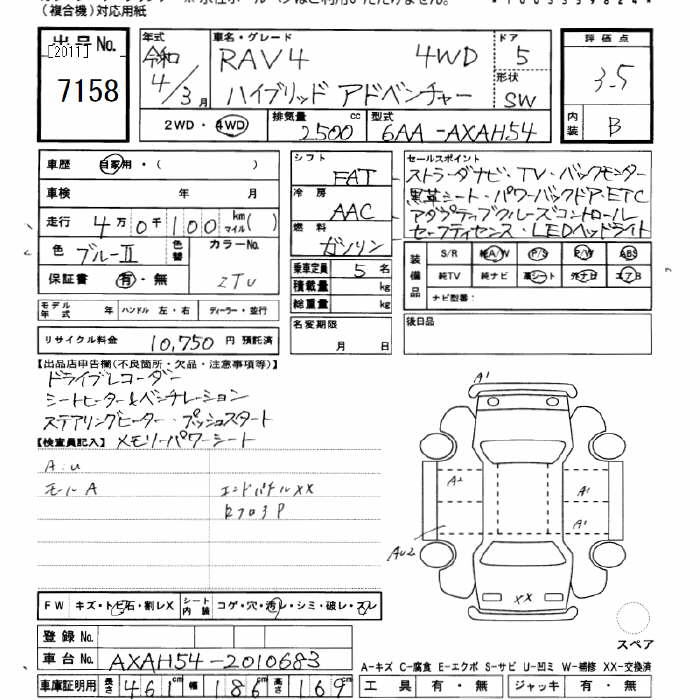 (複合機)対応用紙
出品No.
[2011]
7158
年式
令和
4/3月
車名・グレード
RAV4 4WD
ハイブリッド アドベンチャー
ドア
5
形状
SW
評価点
3.5
内装
B
2WD・4WD
排気量
2500 cc
型式
6AA-AXAH54
車歴 自家用・( )
車検 年 月
走行 4万0千100 km マイル( )
色 ブルーII 色替
カラーNo.
保証書 有・無
モデル年式 年 ハンドル 左・右 ディーラー・並行
リサイクル料金 10,750 円 預託済
シフト
FAT
冷房
AAC
燃料
ガソリン
乗車定員 5 名
積載量 kg
総重量 kg
名変期限
月 日
セールスポイント
ストラーダナビ・TV・バックモンター
黒革シート・パワーバックドア・ETC
アダプティブクルーズコントロール
セーフティセンス・LEDヘッドライト
装備品
S/R 純A/W P/S P/W ABS
純TV 純ナビ 革シート 外ナビ エアB
ナビ型番:
後日品
【出品店申告欄(不良箇所・欠品・注意事項等)】
ドライブレコーダー
シートヒーター&ベンチレーション
ステアリングヒーター・プッシュスタート
【検査員記入】 メモリーパワーシート
A.U
モールA
エンドパネルXX
A1
A2
A1
A1
AU2
XX
スペア
FW キズ・トビ石・割レX シート内装 コゲ・穴・汚レ・シミ・破レ・スレ
登録No.
車台No. AXAH54-2010683
車庫証明用 長さ 461 幅 186 高さ 169
A-キズ C-腐食 E-エクボ S-サビ U-凹ミ W-補修 XX-交換済
工具 有・無 ジャッキ 有・無